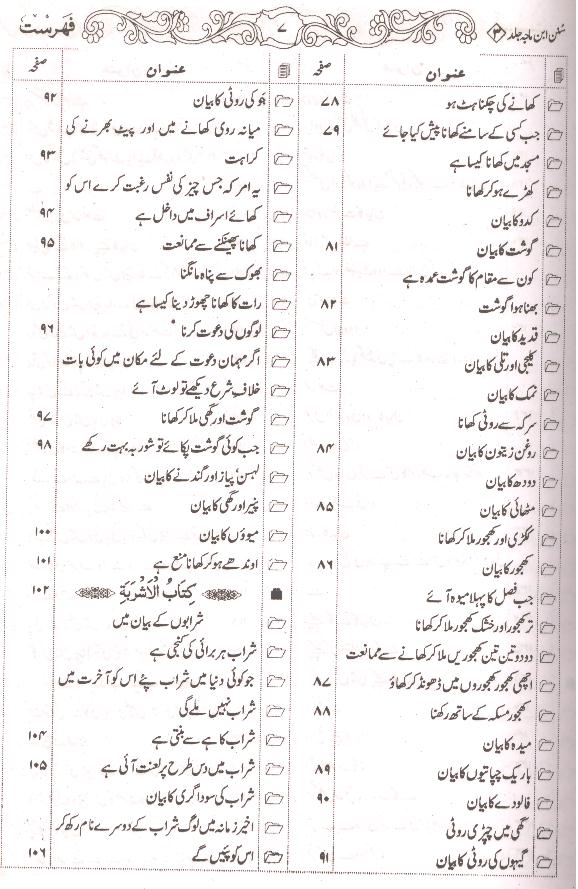 سُنن ابن ماجہ جلد ۳
۷
فہرست
عنوان
صفحہ
کھانے کی چکناہٹ ہو ۷۸
جب کسی کے سامنے کھانا پیش کیا جائے ۷۹
مسجد میں کھانا کیسا ہے
کھڑے ہو کر کھانا
کدو کا بیان
گوشت کا بیان ۸۱
کون سے مقام کا گوشت عمدہ ہے
بھنا ہوا گوشت ۸۲
قدید کا بیان
کلیجی اور تلی کا بیان ۸۳
نمک کا بیان
سرکہ سے روٹی کھانا
روغن زیتون کا بیان ۸۴
دودھ کا بیان
مٹھائی کا بیان ۸۵
ککڑی اور کھجور ملا کر کھانا
کھجور کا بیان ۸۶
جب فصل کا پہلا میوہ آئے
تر کھجور اور خشک کھجور ملا کر کھانا
دو دو تین تین کھجوریں ملا کر کھانے سے ممانعت
اچھی کھجور کھجوروں میں ڈھونڈ کر کھاؤ ۸۷
کھجور مسکہ کے ساتھ رکھنا ۸۸
میدہ کا بیان
باریک چپاتیوں کا بیان ۸۹
فالودے کا بیان ۹۰
گھی میں چپڑی روٹی
گیہوں کی روٹی کا بیان ۹۱
عنوان
صفحہ
جَو کی روٹی کا بیان ۹۲
میانہ روی کھانے میں اور پیٹ بھرنے کی
کراہت ۹۳
یہ امر کہ جس چیز کی نفس رغبت کرے اس کو
کھائے اسراف میں داخل ہے ۹۴
کھانا پھینکنے سے ممانعت ۹۵
بھوک سے پناہ مانگنا
رات کا کھانا چھوڑ دینا کیسا ہے
لوگوں کی دعوت کرنا ۹۶
اگر مہمان دعوت کے لئے مکان میں کوئی بات
خلافِ شرع دیکھے تو لوٹ آئے
گوشت اور گھی ملا کر کھانا ۹۷
جب کوئی گوشت پکائے تو شوربہ بہت رکھے ۹۸
لہسن‘ پیاز اور گندنے کا بیان
پنیر اور گھی کا بیان
میوؤں کا بیان ۱۰۰
اوندھے ہو کر کھانا منع ہے ۱۰۱
کِتَابُ الْاَشْرِبَةِ ۱۰۲
شرابوں کے بیان میں
شراب ہر برائی کی کنجی ہے
جو کوئی دنیا میں شراب پئے اس کو آخرت میں
شراب نہیں ملے گی
شراب کاہے سے بنتی ہے ۱۰۴
شراب میں دس طرح پر لعنت آئی ہے ۱۰۵
شراب کی سوداگری کا بیان
اخیر زمانہ میں لوگ شراب کے دوسرے نام رکھ کر
اس کو پئیں گے ۱۰۶